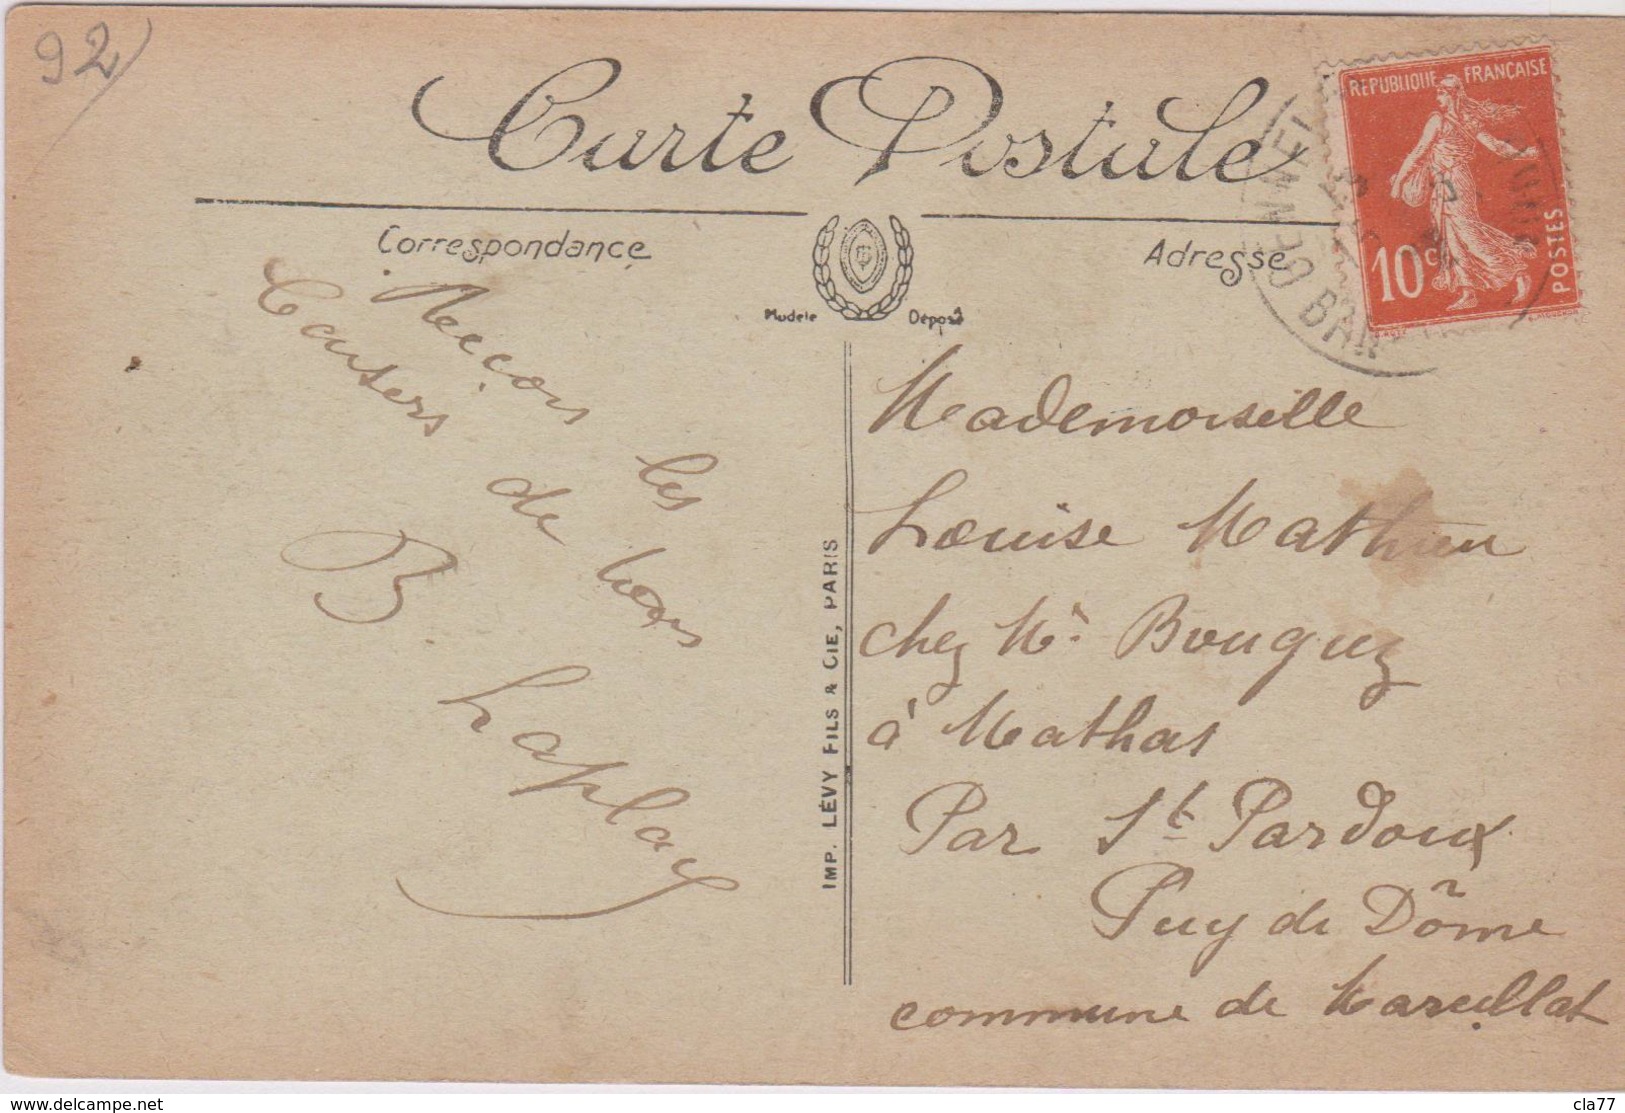 92
Carte Postale
Correspondance
Adresse
Modèle Déposé
REPUBLIQUE FRANÇAISE
10c
POSTES
Reçois les
baisers de
B. Laplay
IMP. LÉVY FILS & CIE, PARIS
Mademoiselle
Louise Mathieu
chez Mr Bouguez
à Mathas
Par St Pardoux
Puy de Dôme
commune de Marcillat
www.delcampe.net
cla77